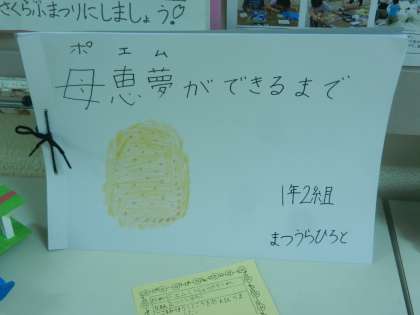 さくらふまつりにしましょう!
ポエム
母恵夢ができるまで
1年2組
まつうらひろと